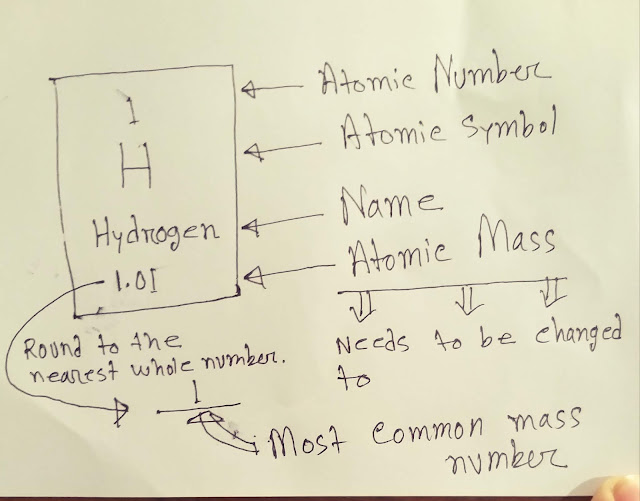 1
H
Hydrogen
1.01
Atomic Number
Atomic Symbol
Name
Atomic Mass
Needs to be changed
to
Round to the
nearest whole number.
1
Most common mass
number